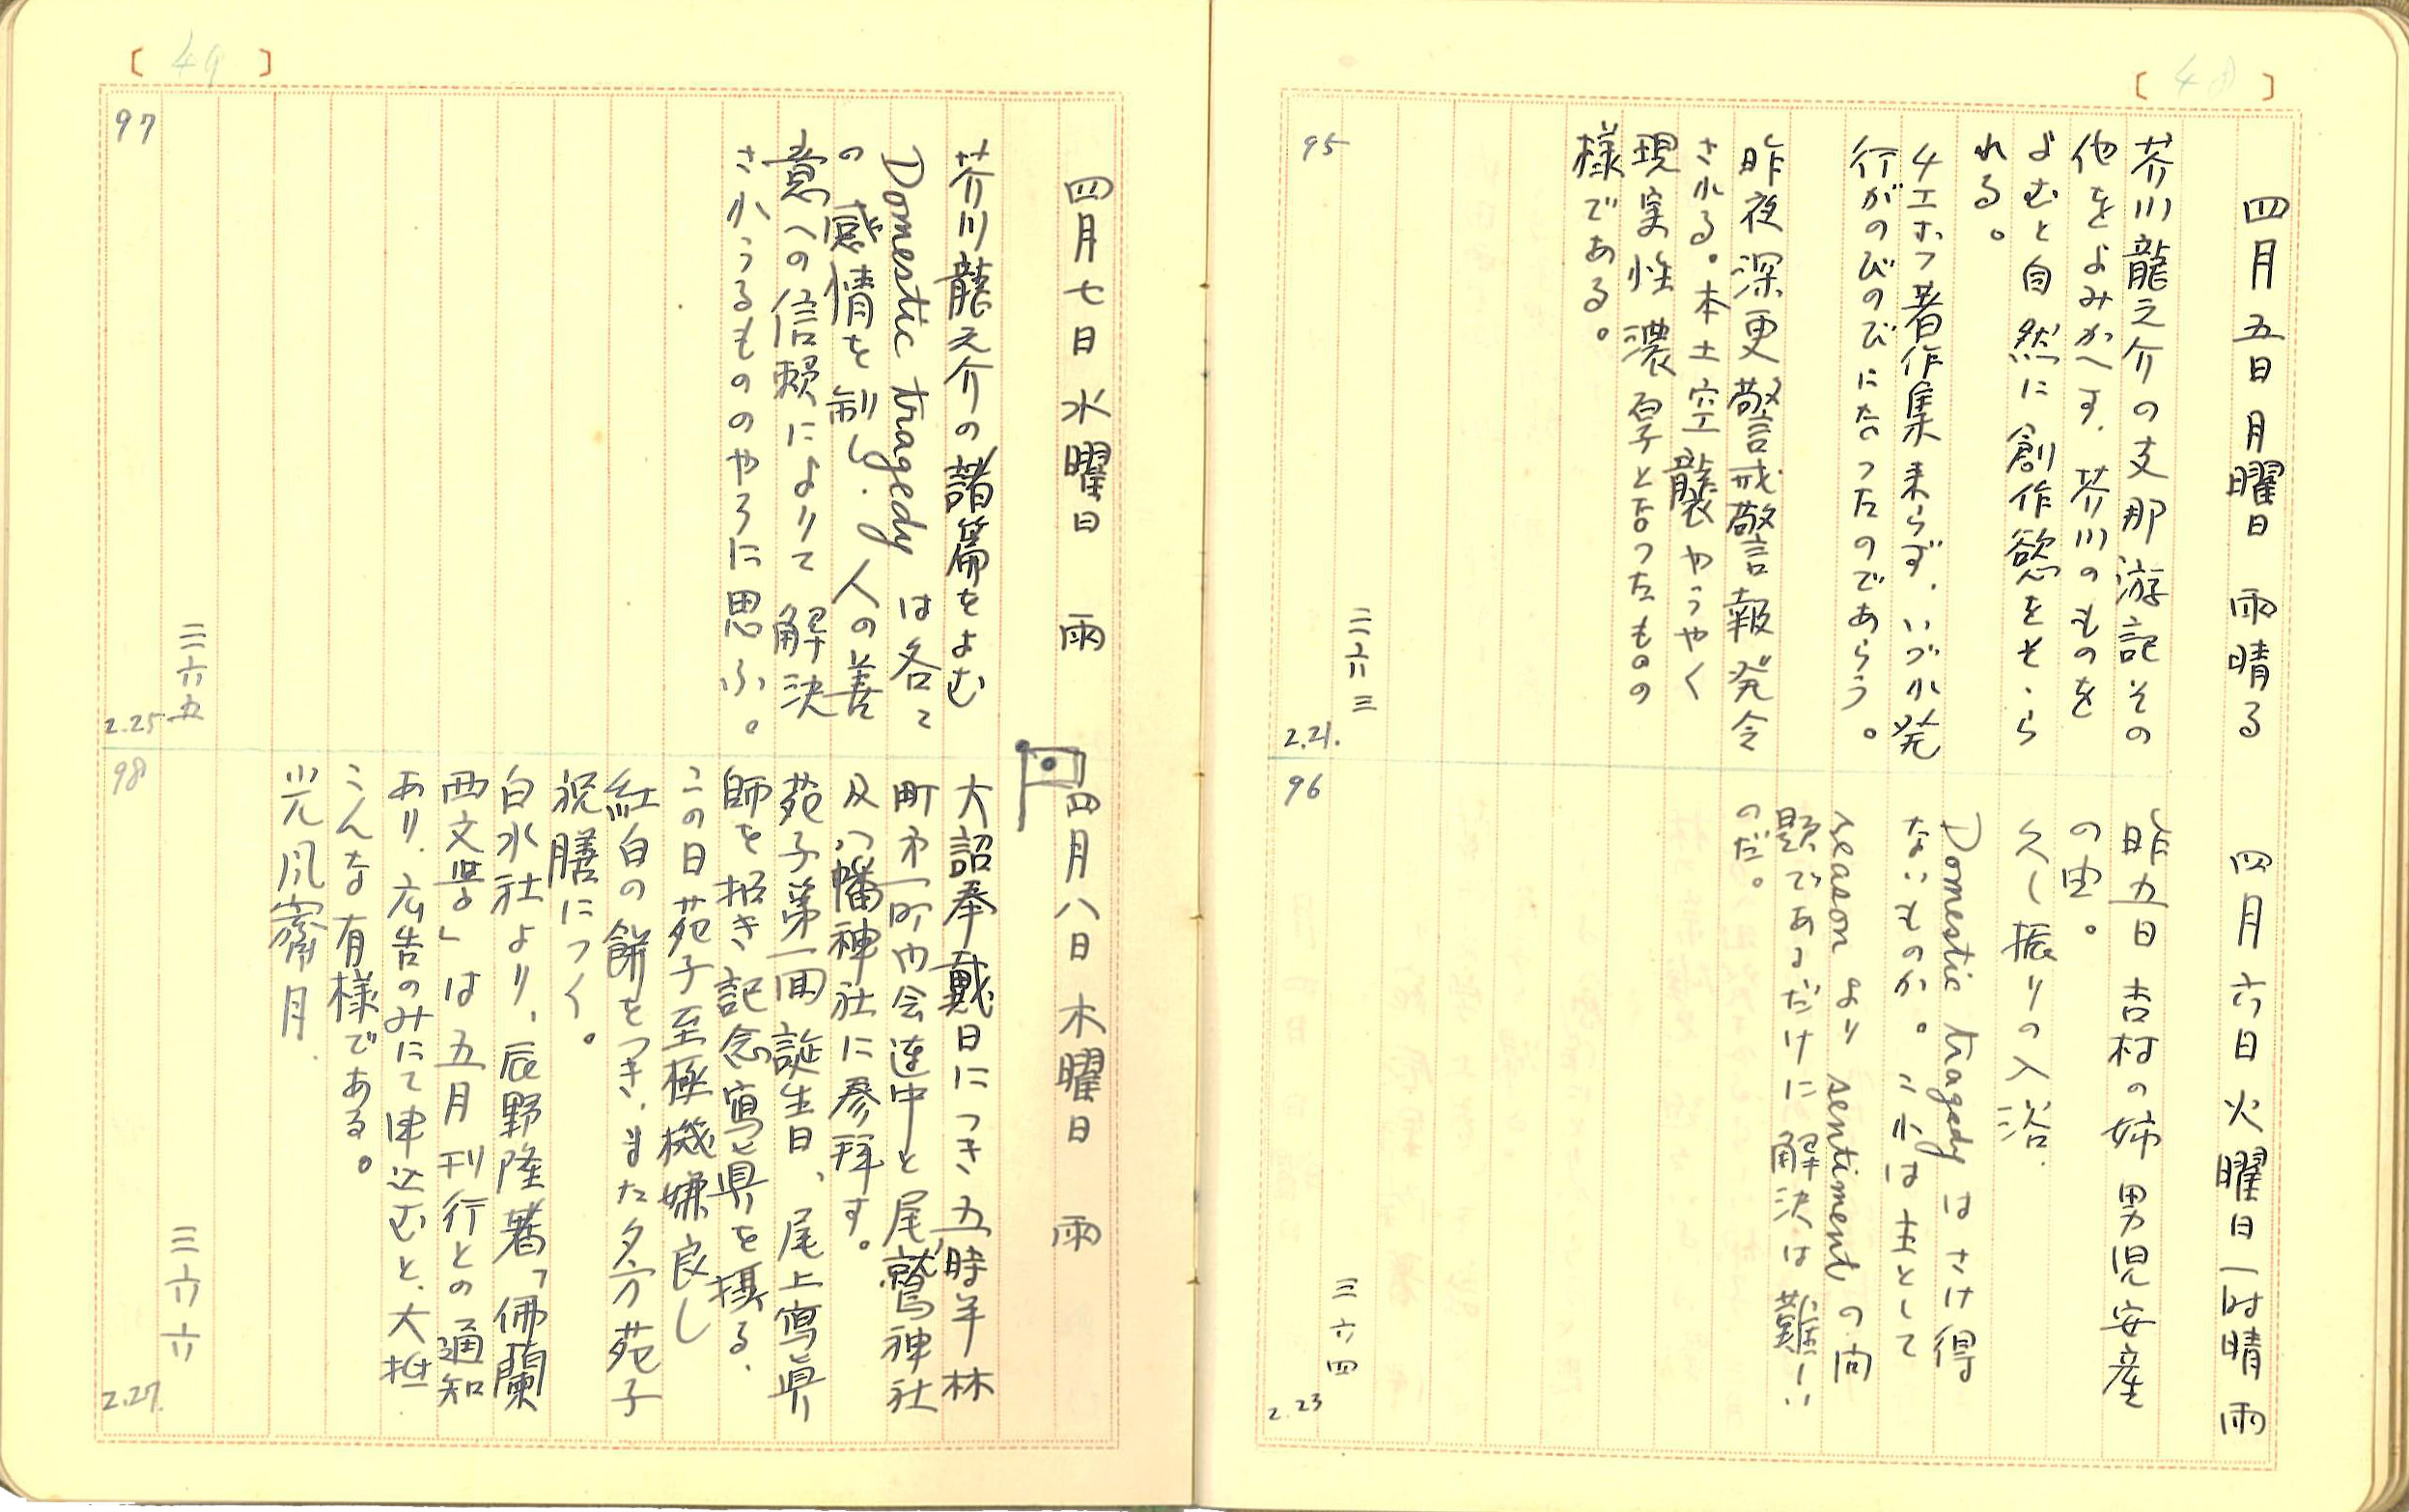 [48]
四月五日 月曜日 雨晴る
芥川龍之介の支那游記その
他をよみかへす. 芥川のものを
よむと自然に創作慾をそゝら
れる。
チエホフ著作集来らず. いづれ発
行がのびのびになつたのであらう。
昨夜深更警戒警報発令
される。本土空襲やうやく
現実性濃厚となつたものの
様である。
95
三六三
2.21.
四月六日 火曜日 一時晴 雨
昨五日 吉村の姉 男児安産
の由。
久し振りの入浴.
Domestic tragedy はさけ得
ないものか。これは主として
reason より sentiment の問
題であるだけに解決は難しい
のだ。
96
三六四
2.23
[49]
四月七日 水曜日 雨
芥川龍之介の諸篇をよむ
Domestic tragedy は各々
の感情を制し. 人の善
意への信頼によりて解決
されうるもののやうに思ふ。
97
三六五
2.25
四月八日 木曜日 雨
大詔奉戴日につき五時半林
町第一町内会連中と尾鷲神社
及八幡神社に参拝す。
苑子第一回誕生日、尾上寫眞
師を招き記念寫眞を撮る.
この日苑子至極機嫌良し
紅白の餅をつき、また夕方苑子
祝膳につく。
白水社より、辰野隆著「佛蘭
西文学」は五月刊行との通知
あり. 広告のみにて申込むと、大抵
こんな有様である。
光風霽月.
98
三六六
2.27.